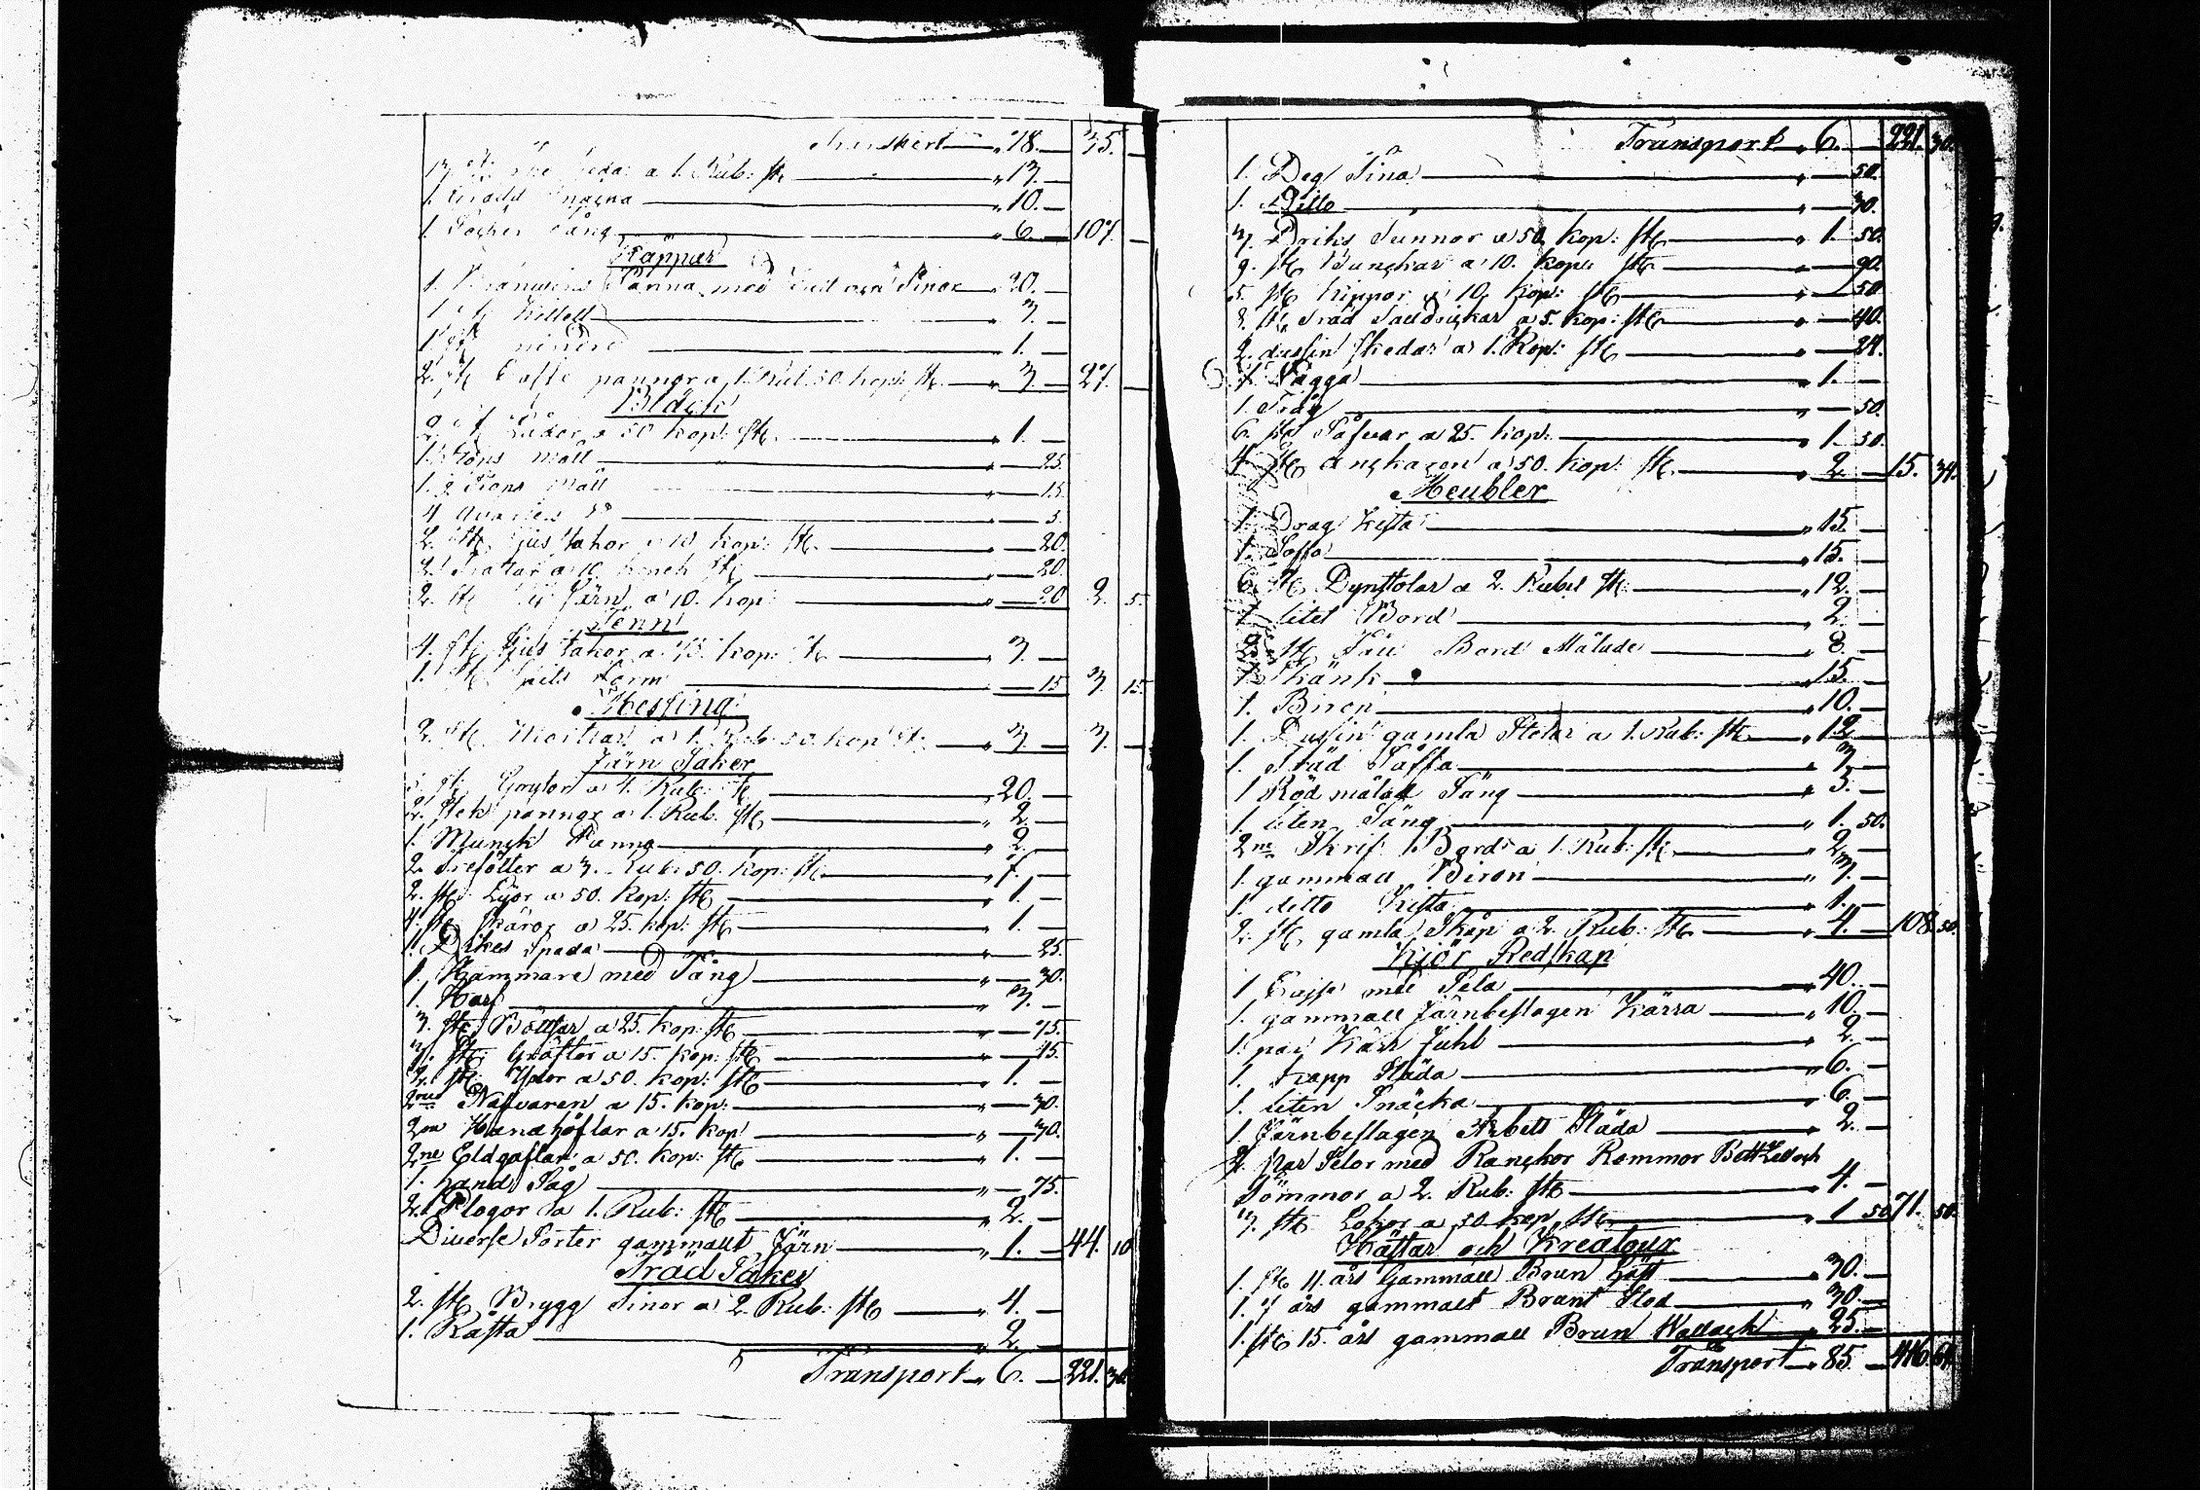 Transport 18. — 35. —
a 1. Rub: st: — 13. —
1. — 10. —
1. Socker Tång — 6. — 107. —
Kåppar
1. Bränwins Panna med och Pinor — 20. —
1 st Kittell — 3. —
1 st mindre — 1. —
2. st Caffe pannor a 1. Rub. 50. kop: st: — 3 — 27. —
Bläck
2 st a 50 kop: st: — 1. —
1. Kops mått — 25.
1. mått — 15.
4 — 5.
2. st: Ljus stakor a 10 kop: st: — 20.
2. Trattar a 10. kopek st: — 20.
2. st Järn a 10. kop: — 20 2. 5.
Tenn
4. st: Ljus stakor a kop: st: — 3. —
1. st: form — 15 3. 15.
Messing
2. st: Mortlar a 1. Rub. 50. kop st: — 3. — 3. —
Järn Saker
5. st: Grytor a 4. Rub: st: — 20. —
2. Stek pannor a 1. Rub. st: — 2. —
1. Munck Panna — 2. —
2. Trefötter a 3. Rub: 50. kop: st: — 7. —
2. st: Lijor a 50. kop: st: — 1. —
4. st: Skäror a 25. kop: st: — 1. —
1. Dikes Spada — 25.
1. Hammare med Tång — 30.
1. Harf — 3. —
3. st: Böttjor a 25. kop: st: — 75.
3. st: Gräftor a 15. kop: st: — 45.
2. st: Yxor a 50. kop: st: — 1. —
2ne Nafvaren a 15. kop: — 30.
2ne Handhöflar a 15. kop — 30.
2ne Eldgaflar a 50. kop: st: — 1. —
1. hand Såg — 75.
2. Plogor a 1. Rub: st: — 2. —
Diverse Sorter gammalt Järn — 1. — 44. 10
Träd Saker
2. st: Brygg Tinor a 2. Rub: st: — 4. —
1. Kafta — 2. —
Transport 6. — 221. 30.
Transport 6. — 221. 30.
1. Deg Tina — 50.
1. Ditto — 30.
3. Driks Tunnor a 50 kop: st: — 1. 50.
9. st: Bunckar a 10. kop: st: — 90.
5. st: Kippor a 10. kop: st: — 50.
8. st: Träd Talldrickar a 5. kop: st: — 40.
2. dussin Skedar a 1. Kop: st: — 24.
1. Vagga — 1. —
1. Tråg — 50.
6. st: Såfvar a 25. kop: — 1. 50.
4. st: Anckaren a 50. kop: st: — 2. — 15. 34.
Meubler
1. Drag Kista — 15. —
1. Soffa — 15. —
6. st: Dynstolar a 2. Rubel st: — 12. —
1 litet Bord — 2. —
2. st: Fäll Bord Målade — 8. —
1. Skänk — 15. —
1. Biron — 10. —
1. Dussin gamla Stolar a 1. Rub: st: — 12 —
1. Träd Soffa — 3. —
1 Röd målad Säng — 3. —
1. liten Säng — 1. 50.
2ne Skrif Bord a 1. Rub: st: — 2. —
1. gammall Biron — 3. —
1. ditto Kista — 1. —
2. st: gamla Skåp a 2. Rub: st: — 4. — 108 50.
Kjör Redskap
1 med Sela — 40. —
1. gammall Järnbeslagen Kärra — 10. —
1. par Kärr Juhl — 2. —
1. Trapp Släda — 6. —
1. liten Snäcka — 6. —
1. Järnbeslagen Arbets Släda — 2. —
2. par Selor med Ranckor Remmor Bett och
Tömmor a 2. Rub: st: — 4. —
3. st: Lokor a 50. kop st: — 1 50 71. 50.
Hästar och Kreatour
1. st: 11. års Gammall Brun Häst — 30. —
1. 7 års gammalt Brunt Stod — 30. —
1. st: 15. års gammall Brun Wallack — 25. —
Transport 85. — 416. 64.